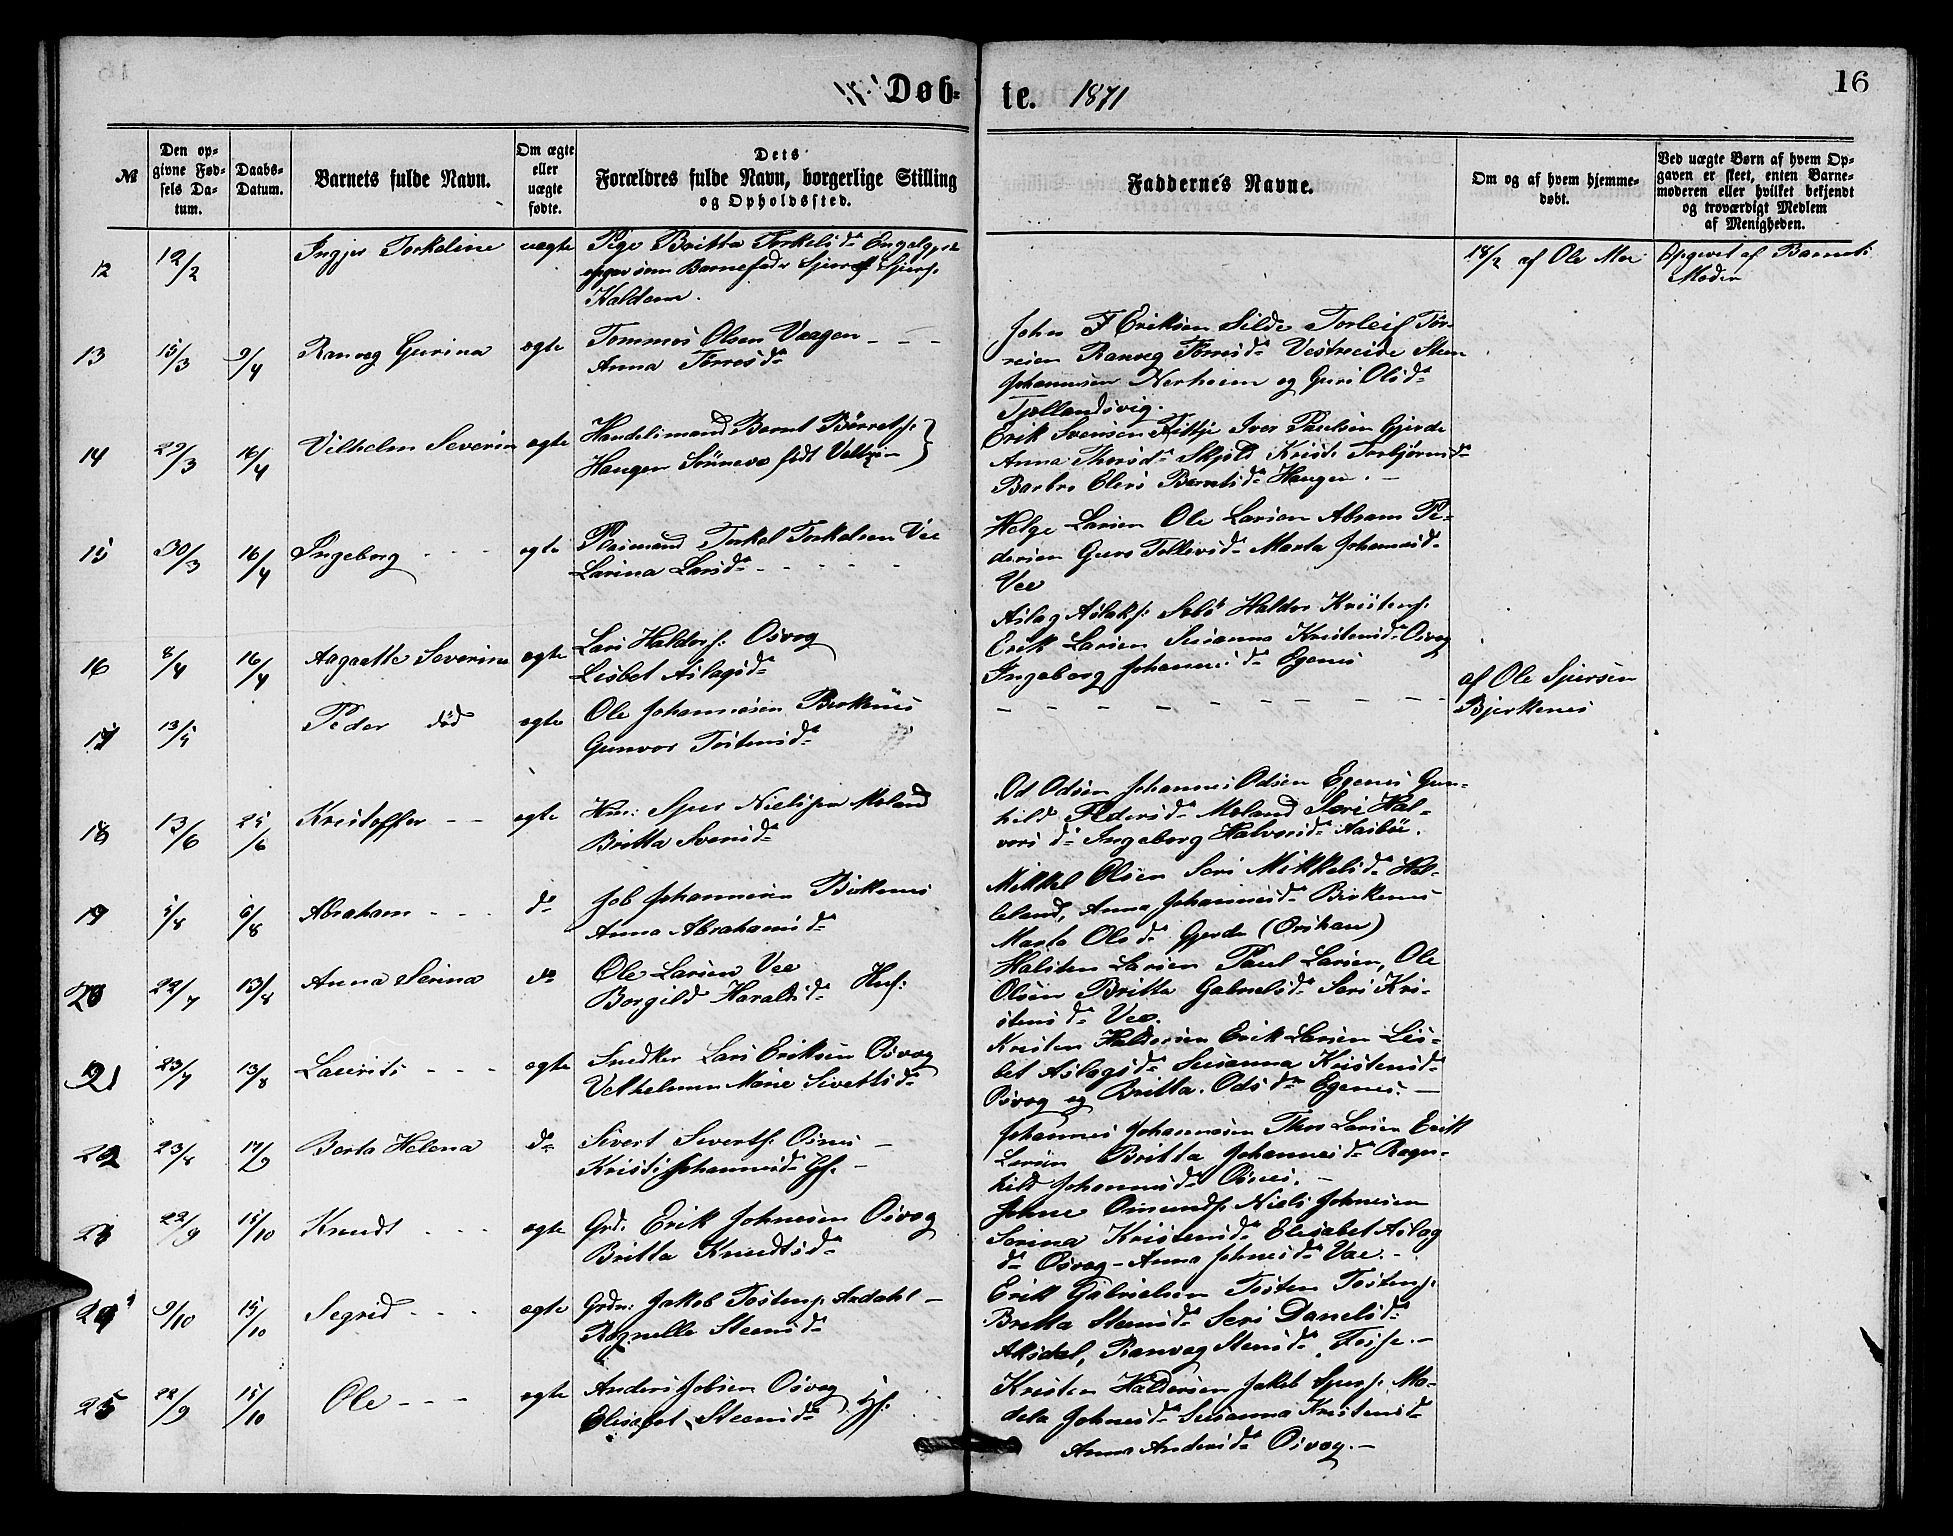 Døb-
te. 1871
16
№
Den op-
givne Fød-
sels Da-
tum.
Daabs-
Datum.
Barnets fulde Navn.
Om ægte
eller
uægte
fødte.
Dets
Forældres fulde Navn, borgerlige Stilling
og Opholdssted.
Faddernes Navne.
Om og af hvem hjemme-
døbt.
Ved uægte Børn af hvem Op-
gaven er skeet, enten Barne-
moderen eller hvilket bekjendt
og troværdigt Medlem
af Menigheden.
12 12/2 Ingjer Torkeline uægte Pige Britta Torkelsd
som Barnefader
18/2 af Ole Moe
Opgivet af Barnets
Moder
13 15/3 9/4 Ranveg Gurina ægte Tommes Olsen Vaagen
Anna Torresd
John Eriksen Silde Torleif Tor-
reien Ranveg Torresd Vestreide Sten
Johannesen Nerheim og Guri Olsd
Tjollandsvig.
14 29/3 16/4 Vilhelm Severin ægte Handelsmand Bernt Børrets:
Haugen født
Erik Svensen Fitje Iver Paulsen Gjerde
Anna Thorsd Skjold Kristi Torbjørnsd
Barbro Berntsd Haugen.
15 30/3 16/4 Ingeborg ægte Plasmand Torkel Torkelsen Vee
Larina Larsd
Helge Larsen Ole Larsen Abram Pe-
dersen Guro Tollevsd Marta Johannesd
Vee
16 8/4 16/4 Aagaatte Severine ægte Lars Haldors: Osvog
Lisbet Aslagsd
Aslag Aslaks: Haldor Kristens:
Erik Larsen Susanna Kristensd Osvog
Ingeborg Johannesd Egenes
17 13/5 Peder død ægte Ole Johannesen Birkenes
Gunvor Tostensd
af Ole Sjursen
Bjerkenes
18 13/6 25/6 Kristoffer ægte Hm: Sjur Nielssen Moland
Britta Svensd
Od Odsen Johannes Odsen Egenes Gun-
hild Pedersd Moland Siri Hal-
vorsd Ingeborg Halvorsd
19 5/8 6/8 Abraham d Job Johannesen Birkenes
Anna Abrahamsd
Mikkel Olsen Siri Mikkelsd Hel-
leland, Anna Johannesd Birkenes
Marta Olsd Gjerde
20 22/7 13/8 Anna Serina do Ole Larsen Vee
Borgild Haraldsd Hus:
Halsten Larsen Paul Larsen, Ole
Olsen Britta Gabrielsd Siri Kri-
stensd Vee.
21 23/7 13/8 Laurits ægte Snedker Lars Eriksen Osvog
Velhelmine Marie Sivertsd
Kristen Haldorsen Erik Larsen Lis-
bet Aslagsd Susanna Kristensd
Osvog og Britta Odsd Egenes.
22 23/8 17/9 Berta Helena d Sivert Siverts: Osnes
Kristi Johannesd Gf.
Johannes Johannesen Thor Larsen Erik
Larsen Britta Johannesd Ragn-
hild Johannesd Osnes.
23 22/9 15/10 Knudt ægte Grd: Erik Johnesen Osvog
Britta Knudtsd
Johne Omunds: Niels Johnesen
Serina Kristensd Elisabet Aslag
d Osvog - Anna Johnesd Vae.
24 9/10 15/10 Segrid ægte Grdr: Jakob Tostens: Axdahl
Rognelle Steensd
Erik Gabrielsen Tosten Tostens:
Britta Steensd Siri Danelsd
Aksdal, Ranvog Stensd.
25 22/9 15/10 Ole ægte Anders Jobsen Osvog
Elisabet Steensd Gf:
Kristen Haldorsen Jakob Sjurs: Ma-
dela Johnesd Susanna Kristensd
Anna Andersd Osvog.